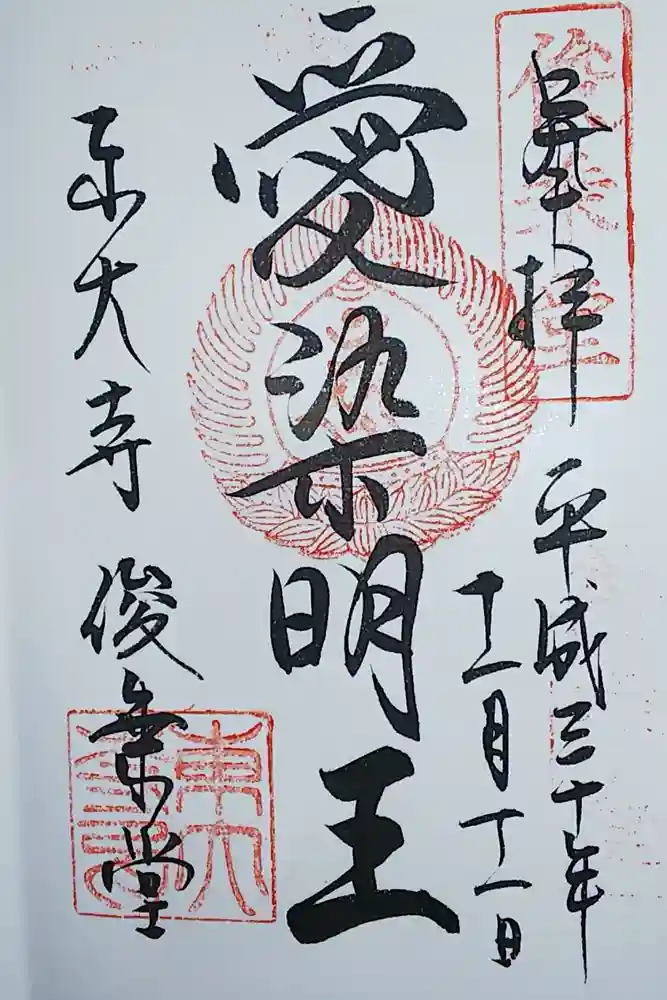 俊乗堂
奉拝
平成三十年
十一月十一日
愛染明王
東大寺 俊乗堂